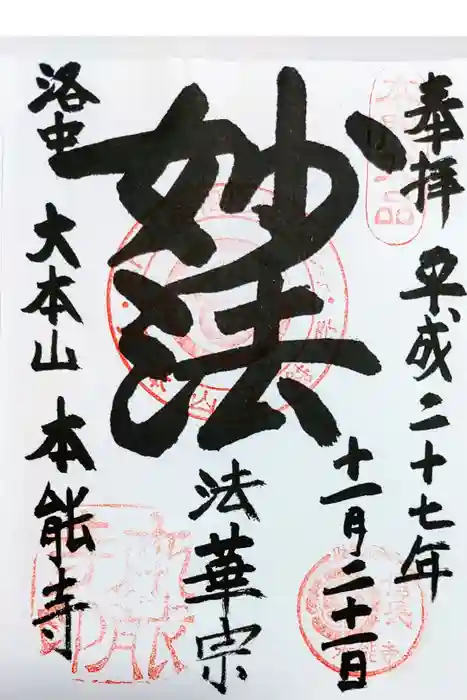 奉拝
平成二十七年
十一月二十一日
妙法
法華宗
洛中
大本山
本能寺